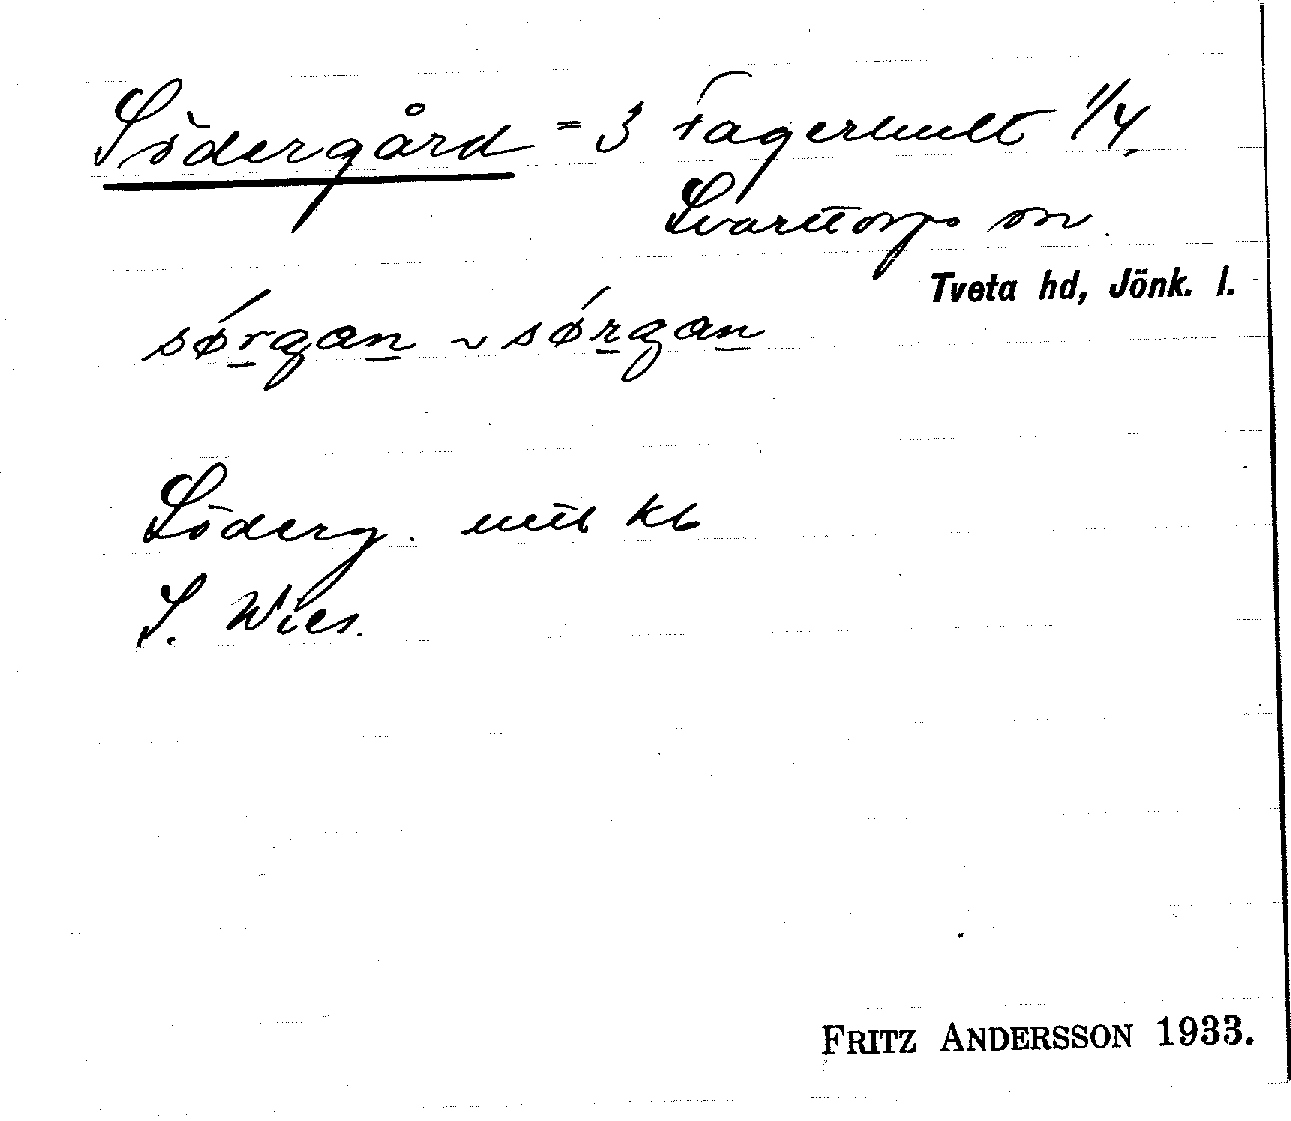 Södergård = 3 Fagerhult 1/4.
Svarttorps sn.
Tveta hd, Jönk. l.
sørgan ~ sørgan
Söderg. mtl kb
S. Wies.
FRITZ ANDERSSON 1933.